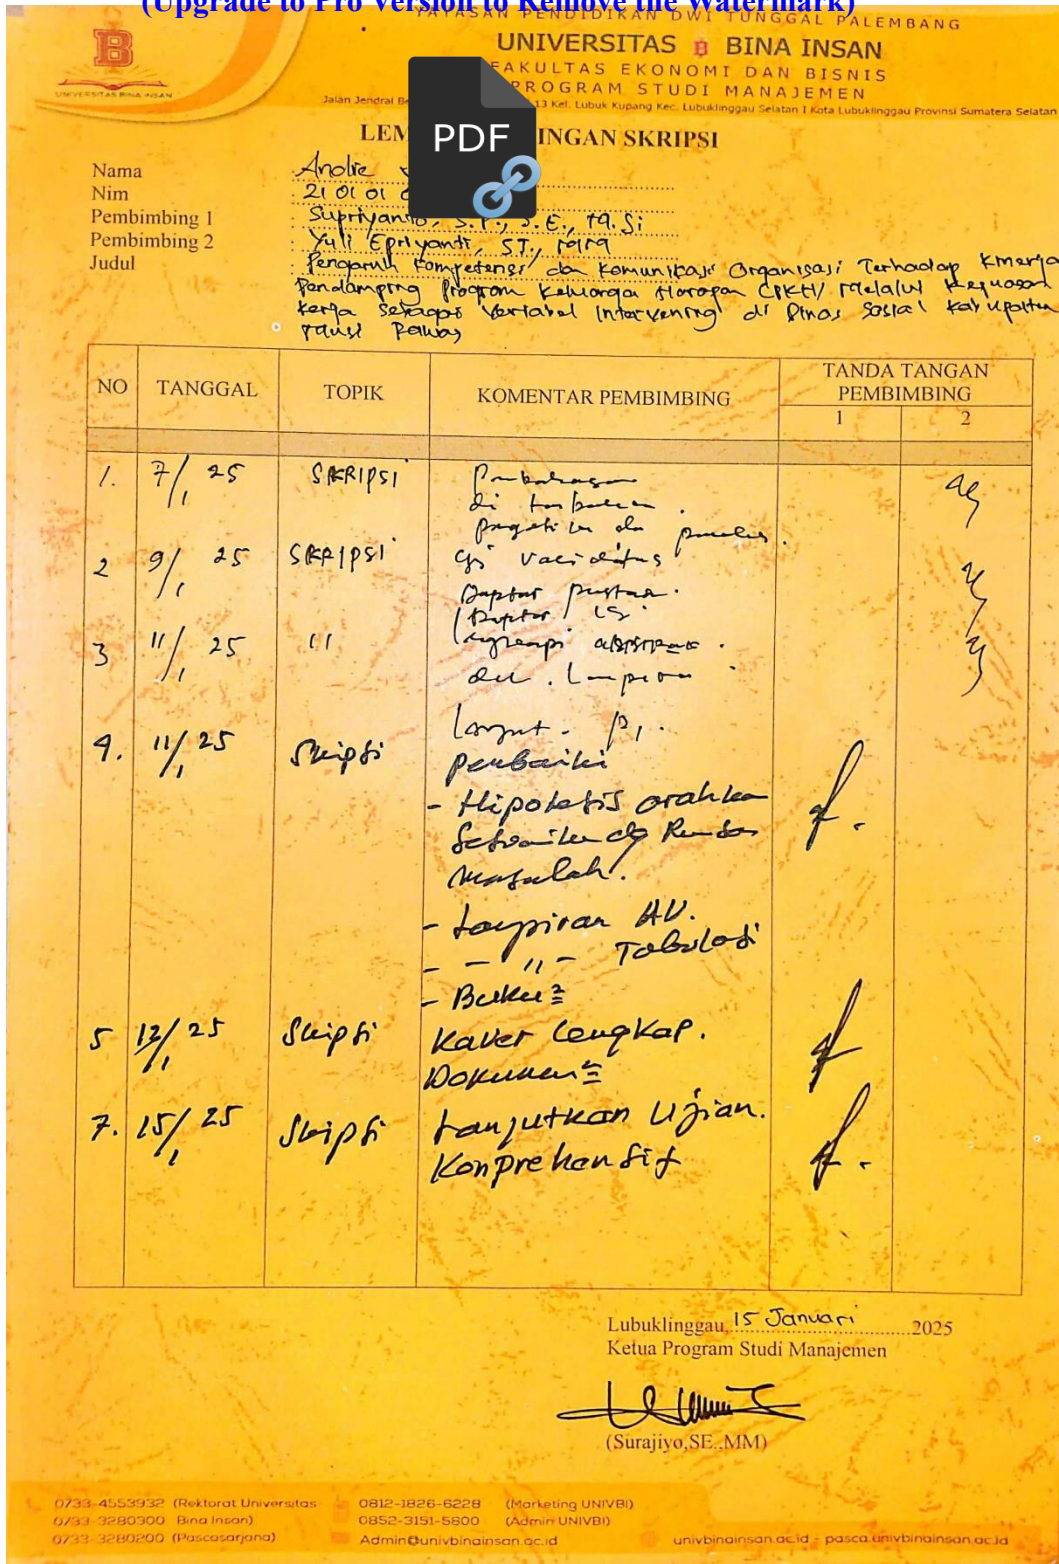 (Upgrade to Pro Version to Remove the Watermark)
YAYASAN PENDIDIKAN DWI TUNGGAL PALEMBANG
UNIVERSITAS B BINA INSAN
FAKULTAS EKONOMI DAN BISNIS
PROGRAM STUDI MANAJEMEN
UNIVERSITAS BINA INSAN
Jalan Jendral Be 13 Kel. Lubuk Kupang Kec. Lubuklinggau Selatan I Kota Lubuklinggau Provinsi Sumatera Selatan
PDF
LEM INGAN SKRIPSI
Nama Andre
Nim : 21 01 01
Pembimbing 1 : Supriyanto, S.P., S.E., M.Si
Pembimbing 2 : Yuli Epriyanti, ST., MM
Judul : Pengaruh Kompetensi dan Komunikasi Organisasi Terhadap Kinerja
Pendamping Program Keluarga Harapan (PKH) Melalui Kepuasan
Kerja Sebagai Variabel Intervening di Dinas Sosial Kabupaten
Musi Rawas
NO TANGGAL TOPIK KOMENTAR PEMBIMBING TANDA TANGAN PEMBIMBING
1 2
1. 7/1 25 SKRIPSI Pembahasan
di
2 9/1 25 SKRIPSI validitas
Daptar pustaka.
Daptar isi
3 11/1 25 11 Lengkapi abstrak.
dan Lampiran
Lanjut P1.
4. 11/1 25 Skripsi perbaiki
- Hipotesis arahkan
Sesuaikan dg Rumusan
Masalah.
- Lampiran
- - 11 - Tabulasi
- Buku2
5 13/1 25 Skripsi Kaver Lengkap.
Dokumen2
7. 15/1 25 Skripsi Lanjutkan Ujian.
Konprehensif
Lubuklinggau, 15 Januari 2025
Ketua Program Studi Manajemen
(Surajiyo,SE.,MM)
0733-4553932 (Rektorat Universitas 0812-1826-6228 (Marketing UNIVBI)
0733-3280300 Bina Insan) 0852-3151-5800 (Admin UNIVBI)
0733-3280200 (Pascasarjana) Admin@univbinainsan.ac.id univbinainsan.ac.id - pasca.univbinainsan.ac.id